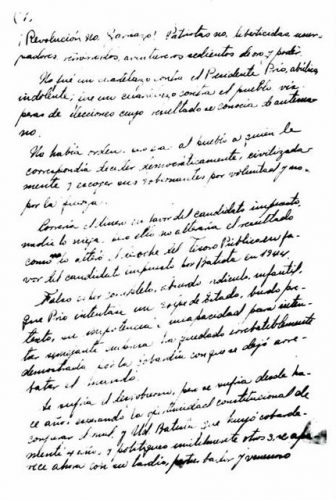 ¡Revolución no, Zarpazo! Patriotas no, liberticidas, usur-
padores, retrógrados, aventureros sedientos de oro y poder.
No fué un cuartelazo contra el Presidente Prío, abúlico
indolente; fue un cuartelazo contra el pueblo, vís-
peras de elecciones cuyo resultado se conocía de antema-
no.
No había orden, al pueblo a quien le
correspondía decidir democráticamente, civilizada-
mente y escoger sus gobernantes por voluntad y no
por la fuerza.
Correría el dinero en favor del candidato impuesto,
nadie lo niega, ello no alteraría el resultado
como no alteró el derroche del Tesoro Público en fa-
vor del candidato impuesto por Batista en 1944.
Falso es por completo, absurdo, ridículo, infantil,
que Prío intentase un golpe de Estado, burdo pre-
texto, su impotencia e incapacidad para inten-
tar semejante empresa ha quedado irrebatiblemente
demostrada por la cobardía con que se dejó arre-
batar el mando.
Se sufría el desgobierno, pero se sufría desde ha-
ce años, esperando la oportunidad constitucional de
conjurar el mal, y Ud Batista, que huyó cobarde-
mente años, y politiqueó inútilmente otros 3, se apa-
rece ahora con su tardío, y venenoso